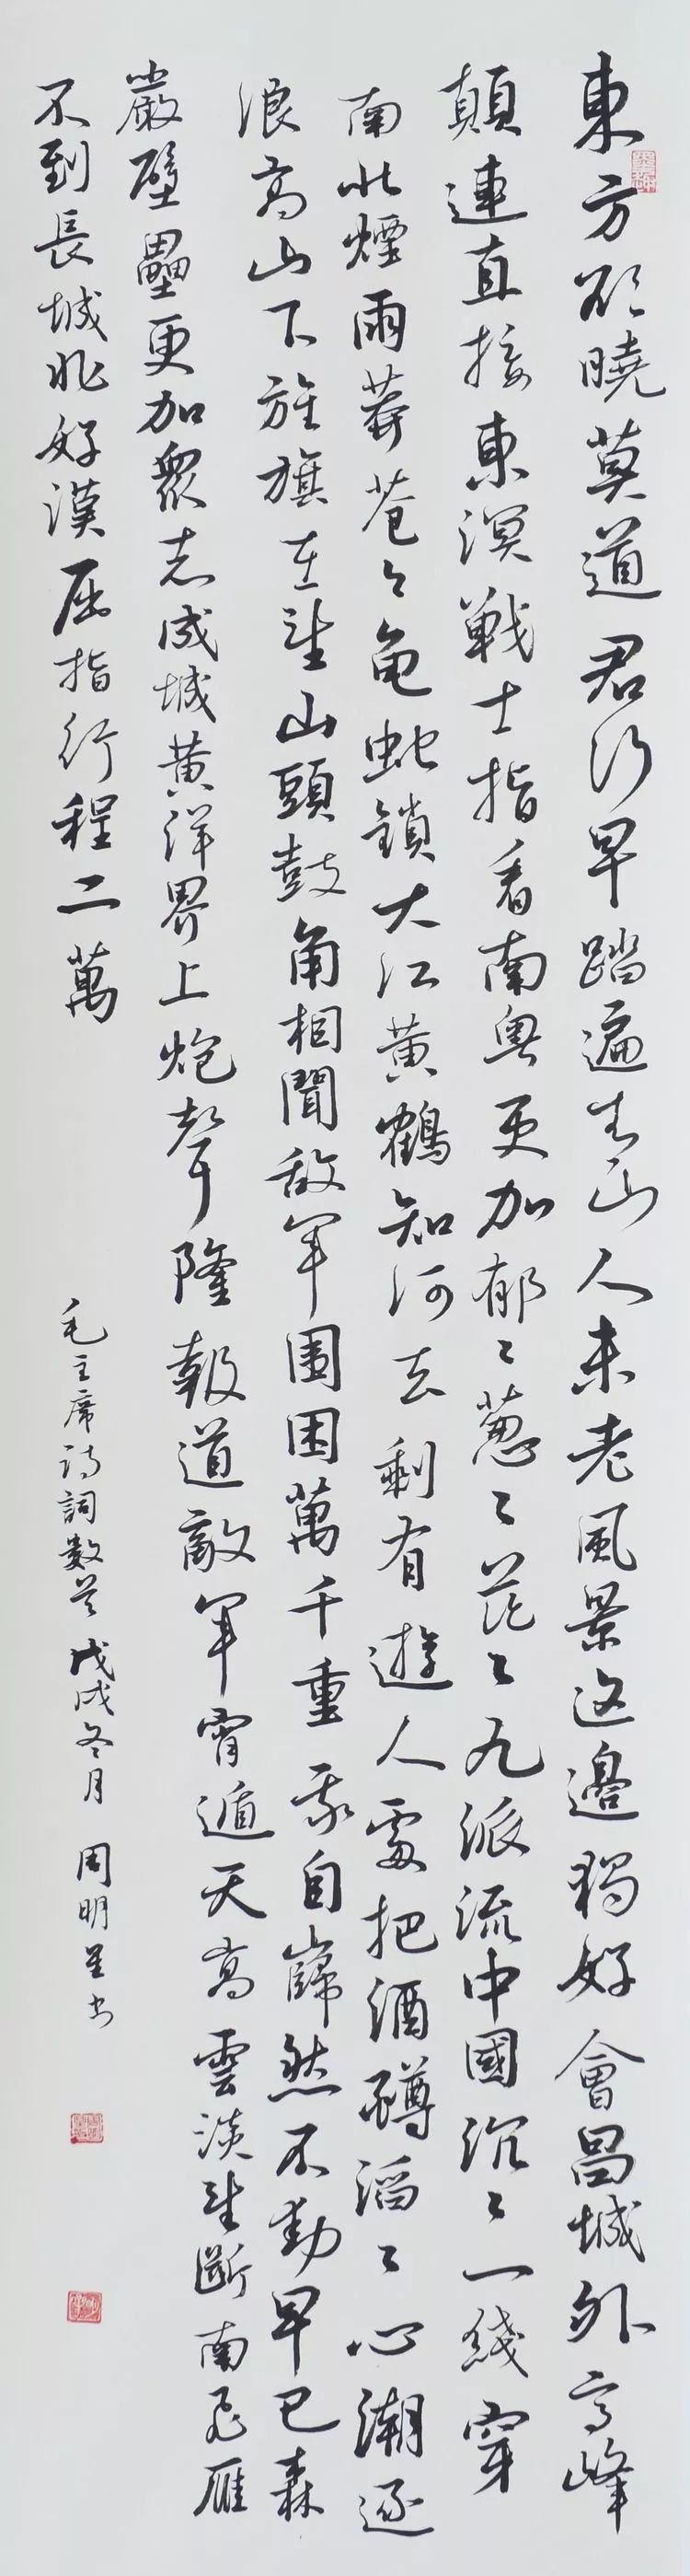 東方欲曉莫道君行早踏遍青山人未老風景这邊獨好會昌城外高峰
顛連直接東溟戰士指看南粵更加郁〻蔥〻茫〻九派流中國沉〻一綫穿
南北煙雨莽蒼〻龜蛇鎖大江黃鶴知何去剩有遊人處把酒酹滔〻心潮逐
浪高山下旌旗在望山頭鼓角相聞敵軍圍困萬千重我自巋然不動早已森
嚴壁壘更加眾志成城黃洋界上炮聲隆報道敵軍宵遁天高雲淡望斷南飛雁
不到長城非好漢屈指行程二萬
毛主席詩詞數首 戊戌冬月 周明星书